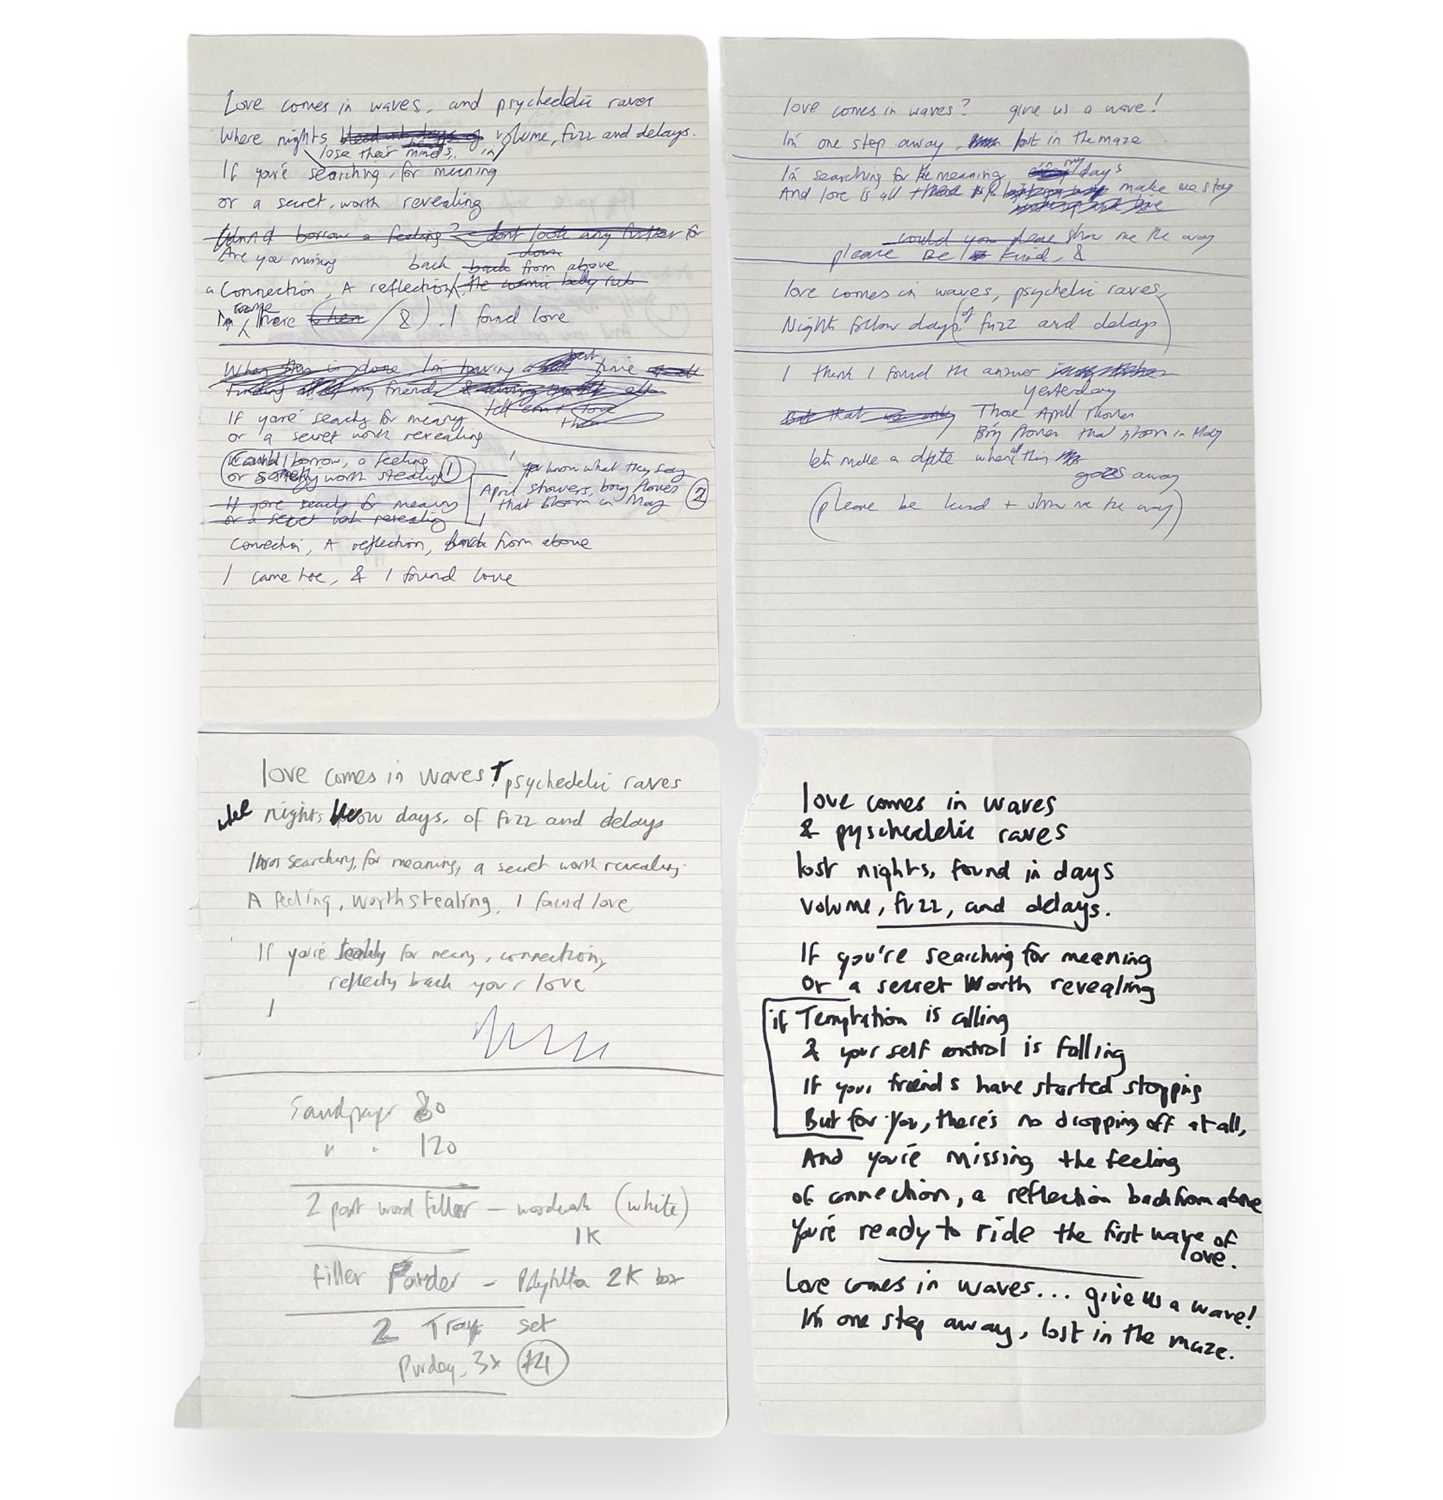 Love comes in waves, and psychedelic raves
Where nights volume, fuzz and delays.
lose their minds, in
If you're searching, for meaning
or a secret, worth revealing
borrow a feeling? dont look any further for
Are you missing back down
back from above
a Connection, A reflection, the
came here when / & ) . I found love
When this is done, I'm having a best time
my friend &
If you're searchg for meang
or a secret worth revealing
borrow, a feeling
or worth stealing 1
you know what they say
April showers, bring flowers 2
that bloom in May
If youre searchg for meaning
or a secret worth revealing
Connection, A reflection, back from above
I came here, & I found love
love comes in waves? give us a wave!
I'm one step away, lost in the maze
I'm searching for the meaning my days
And love is all make me stay
would you please show me the way
please Be kind, &
love comes in waves, psychelic raves,
Nights follow days of fuzz and delays
I think I found the answer
yesterday
But that was only Those April flowers
Bring flowers that bloom in May
let's make a date when all this
goes away
(please be kind + show me the way)
love comes in waves + psychedelic raves
nights now days, of fuzz and delays
searching, for meaning, a secret worth revealing
A feeling, worth stealing, I found love
If you're for meang, connection,
reflectg back your love
I
Sandpaper 80
" " 120
2 part wood filler - (white)
1K
filler Powder - 2K box
2 Tray set
Purdey, 3x £4
love comes in waves
& pyschedelic raves
lost nights, found in days
volume, fuzz, and delays.
If you're searching for meening
Or a secret Worth revealing
if Temptation is calling
& your self control is falling
If your friends have started stopping
But for you, there's no dropping off at all,
And you're missing the feeling
of connection, a reflection back from above
You're ready to ride the first wave of
love.
Love comes in waves... give us a wave!
I'm one step away, lost in the maze.